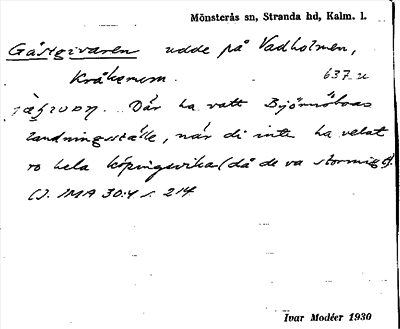 Mönsterås sn, Stranda hd, Kalm. l.
Gästgivaren udde på Vadholmen,
Kråkerum. 637 u
Där ha vatt Björnöboas
landningsställe, när di inte ha velat
ro hela köpingsvika (då de va stormigt).
(). IMA 30:4 s. 214
Ivar Modéer 1930